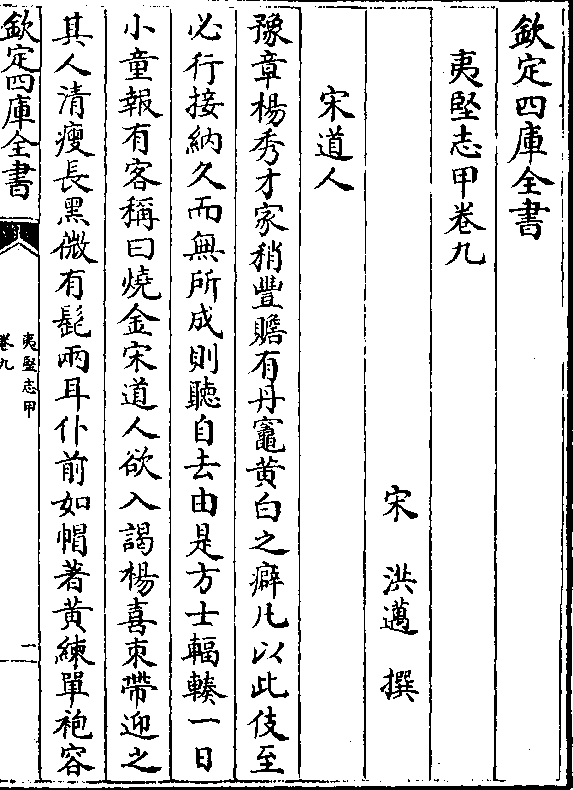 欽定四庫全書
夷堅志甲卷九
宋　洪邁　撰
宋道人
豫章楊秀才家稍豐贍有丹竈黄白之癖凡以此伎至
必行接納久而無所成則聽自去由是方士輻輳一日
小童報有客稱曰燒金宋道人欲入謁楊喜束帶迎之
其人清瘦長黑微有髭兩耳仆前如帽著黄練單袍容
欽定四庫全書
夷堅志甲
卷九
一